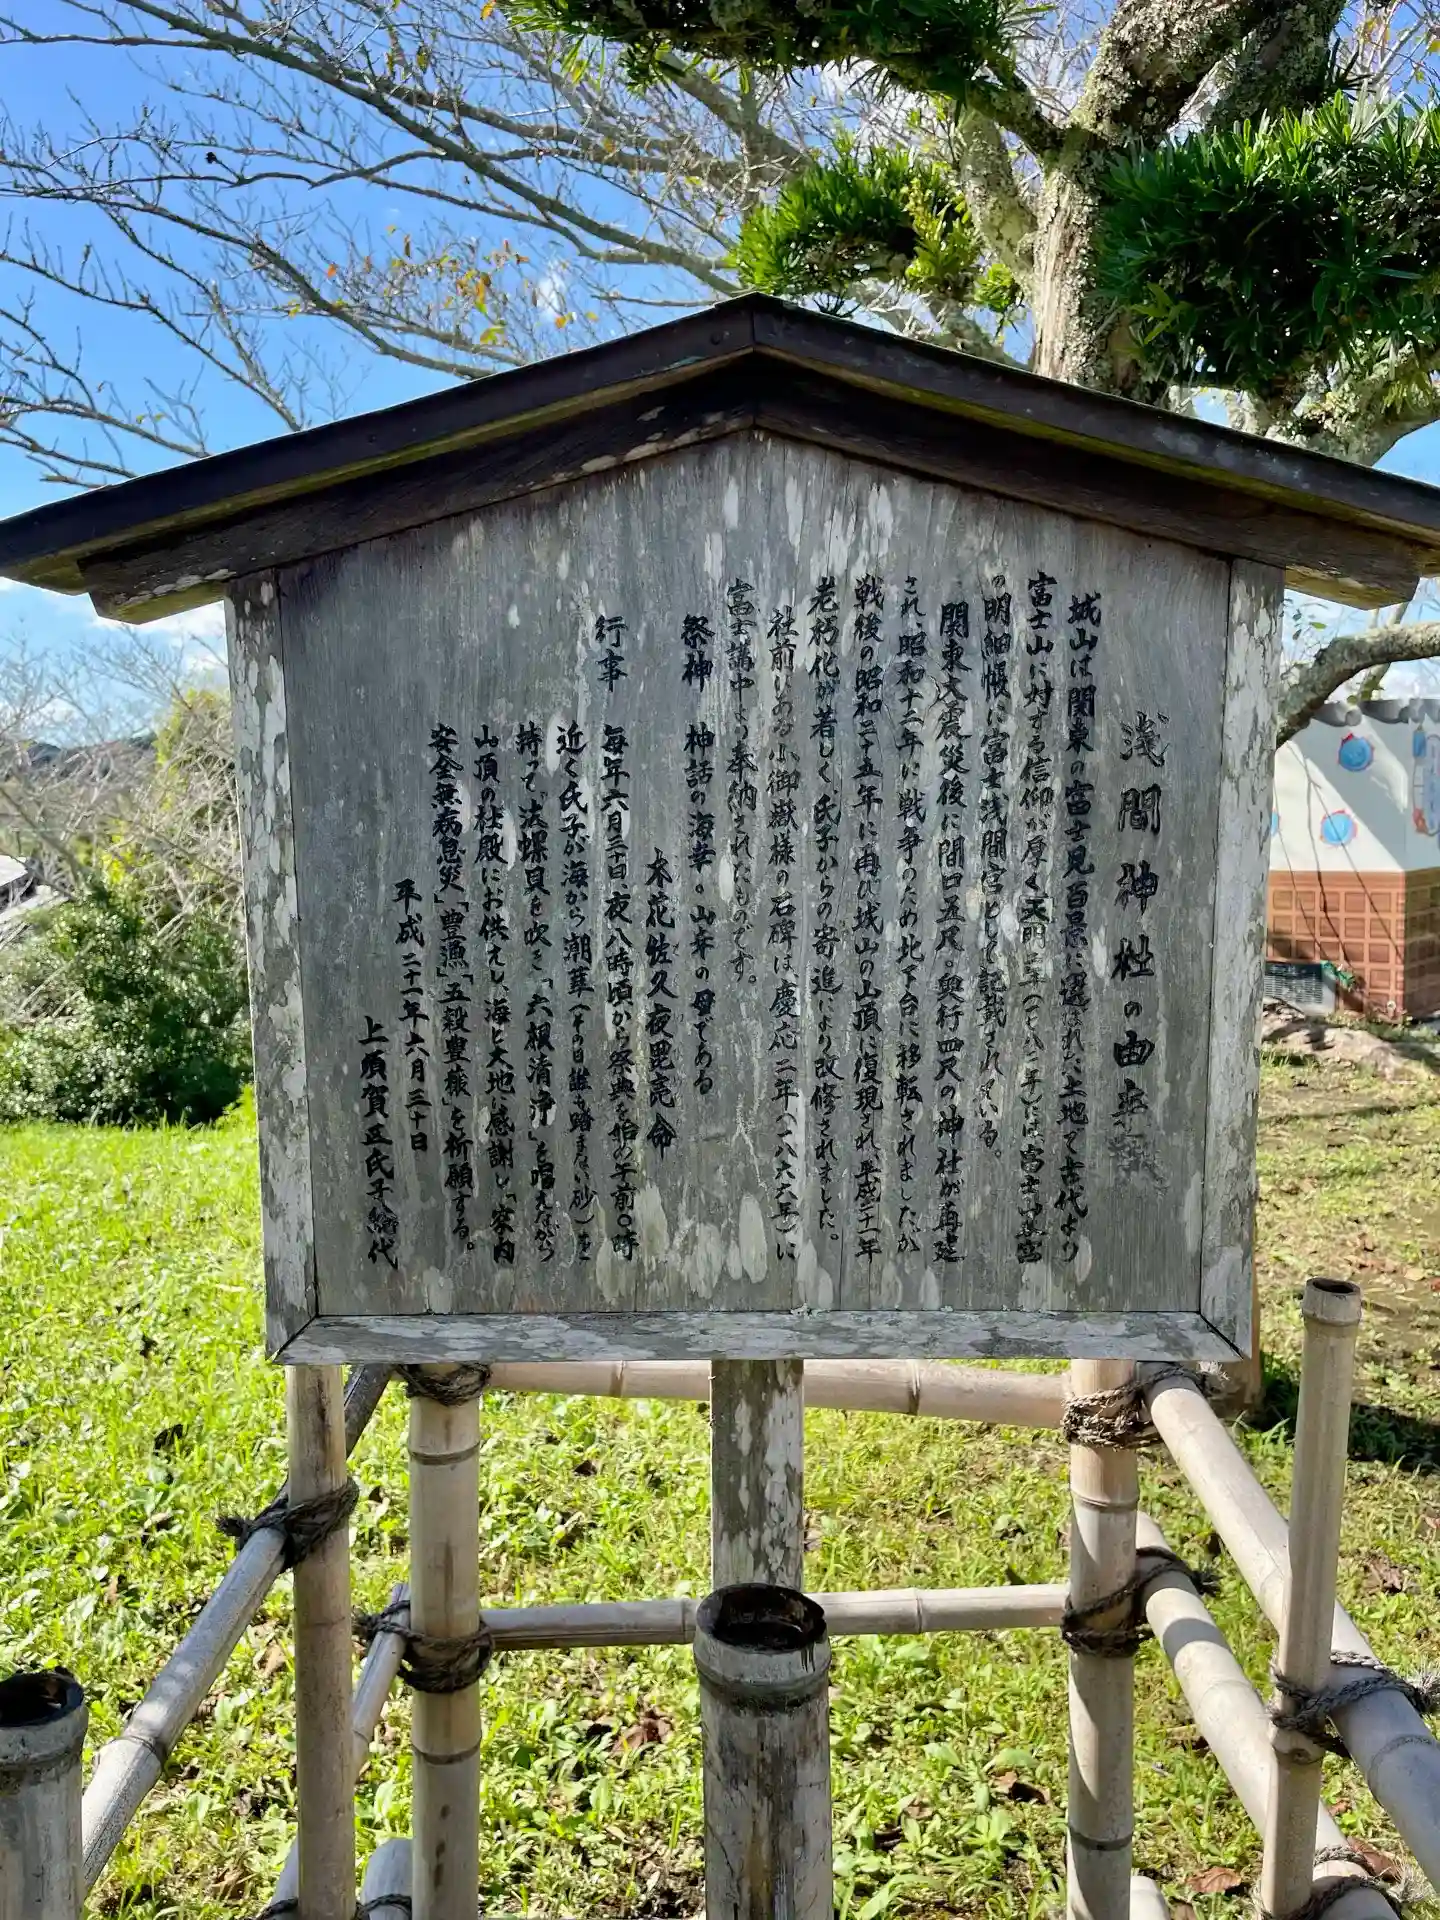 浅間神社の由来
城山は関東の富士見百景に選ばれた土地で古代より
富士山に対する信仰が厚く天明二年(一七八二年)には富士山本宮
の明細帳に富士浅間宮として記載されている。
関東大震災後に間口五尺。奥行四尺の神社が再建
され、昭和十二年に戦争のため北下台に移転されましたが
戦後の昭和三十五年に再び城山の山頂に復現され、平成二十一年
老朽化が著しく、氏子からの寄進により改修されました。
社前にある小御嶽様の石碑は、慶応二年(一八六六年)に
富士講中より奉納されたものです。
祭神 神話の海幸。山幸の母である
木花佐久夜毘売命
行事 毎年六月三十日、夜八時頃から祭典を始め午前〇時
近く氏子が海から潮草(その日誰も踏まない砂)を
持って、法螺貝を吹き「六根清浄」を唱えながら
山頂の社殿にお供えし、海と大地に感謝し「家内
安全無病息災」「豊漁」「五穀豊穣」を祈願する。
平成二十一年六月三十日
上須賀正氏子総代